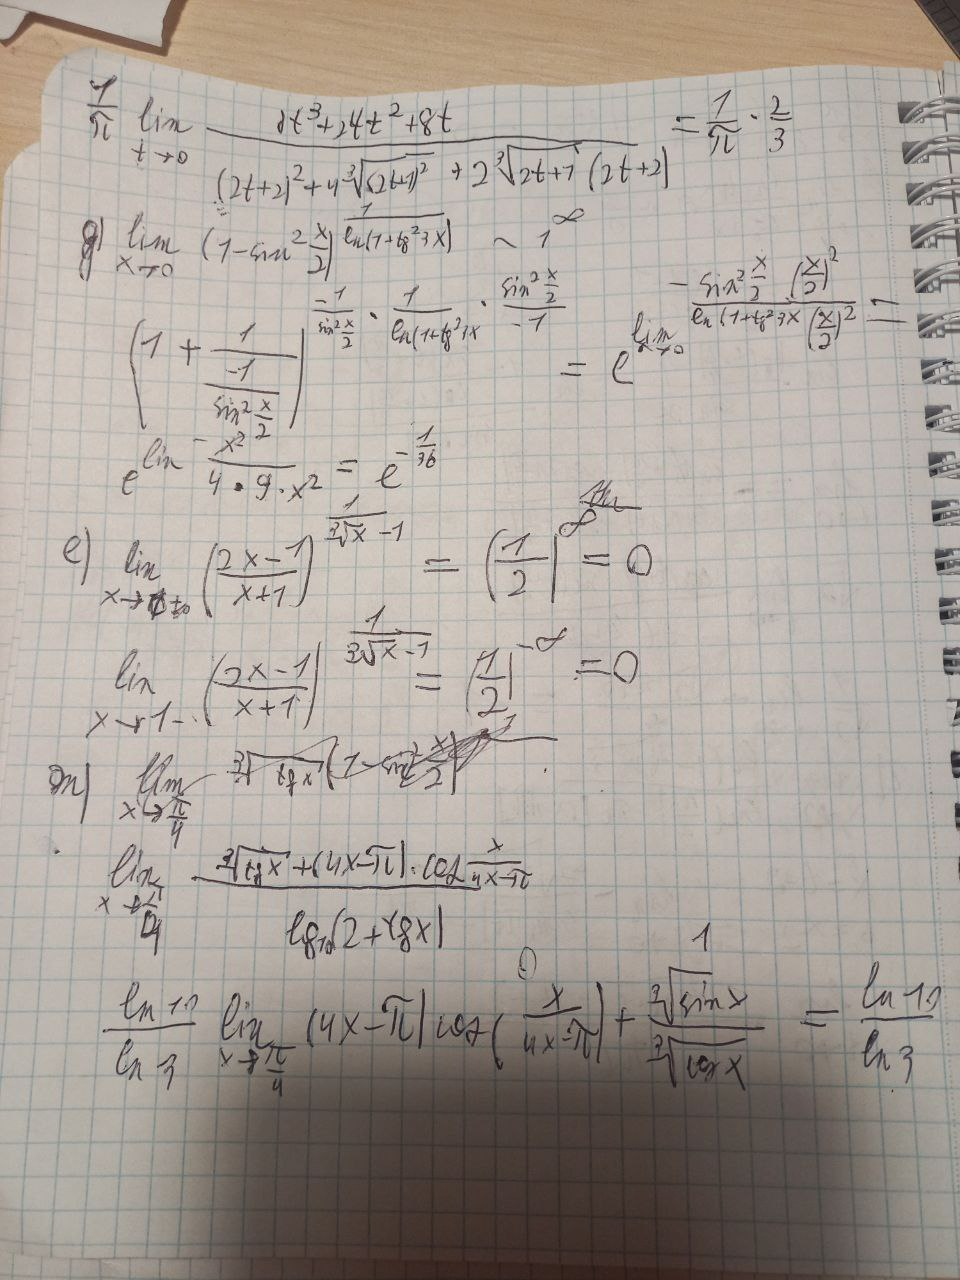 1/π lim t→0 (8t³+24t²+8t)/((2t+2)²+4·∛(2t+1)²+2∛(2t+1)(2t+2)) = 1/π · 2/3
g) lim x→0 (1-sin² x/2)^(1/ln(1+tg²3x)) ~ 1^∞
(1 + 1/(-1/sin² x/2))^(-1/sin² x/2 · 1/ln(1+tg²3x · sin² x/2 / -1) = e^(lim x→0 - sin² x/2 (x/2)² / ln(1+tg²3x (x/2)²) =
e^(lim - x²/(4·9·x²)) = e^(-1/36)
e) lim (2x-1/x+1)^(1/(∛x -1)) = (1/2)^∞ = 0
lim x→1- (2x-1/x+1)^(1/(∛x -1)) = (1/2)^-∞ = 0
m) lim x→π/4
lim x→π/4 (∛tgx + (4x-π)·cos x/(4x-π)) / lg₁₀(2+tgx)
ln10/ln3 lim x→π/4 (4x-π) cos(x/(4x-π)) + ∛sinx/∛cosx = ln10/ln3
0
1